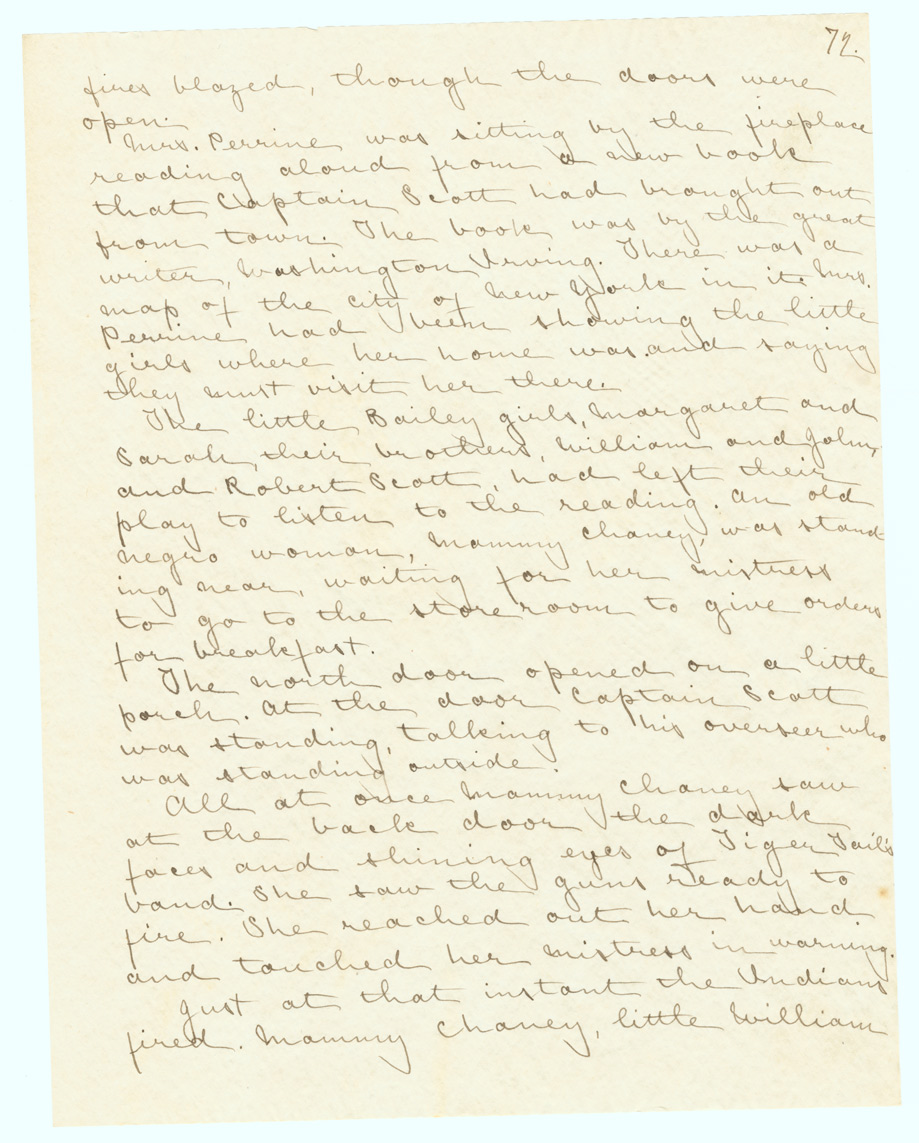 72.
fires blazed, though the doors were
open.
Mrs. Perrine was sitting by the fireplace
reading aloud from a new book
that Captain Scott had brought out
from town. The book was by the great
writer, Washington Irving. There was a
map of the city of New York in it. Mrs.
Perrine had been showing the little
girls where her home was and saying
they must visit her there.
The little Bailey girls, Margaret and
Sarah, their brothers, William and John,
and Robert Scott, had left their
play to listen to the reading. An old
negro woman, Mammy Chaney, was stand-
ing near, waiting for her mistress
to go to the storeroom to give orders
for breakfast.
The north door opened on a little
porch. At the door Captain Scott
was standing, talking to his overseer who
was standing outside.
All at once Mammy Chaney saw
at the back door the dark
faces and shining eyes of Tiger Tail's
band. She saw the guns ready to
fire. She reached out her hand
and touched her mistress in warning.
Just at that instant the Indians
fired. Mammy Chaney, little William